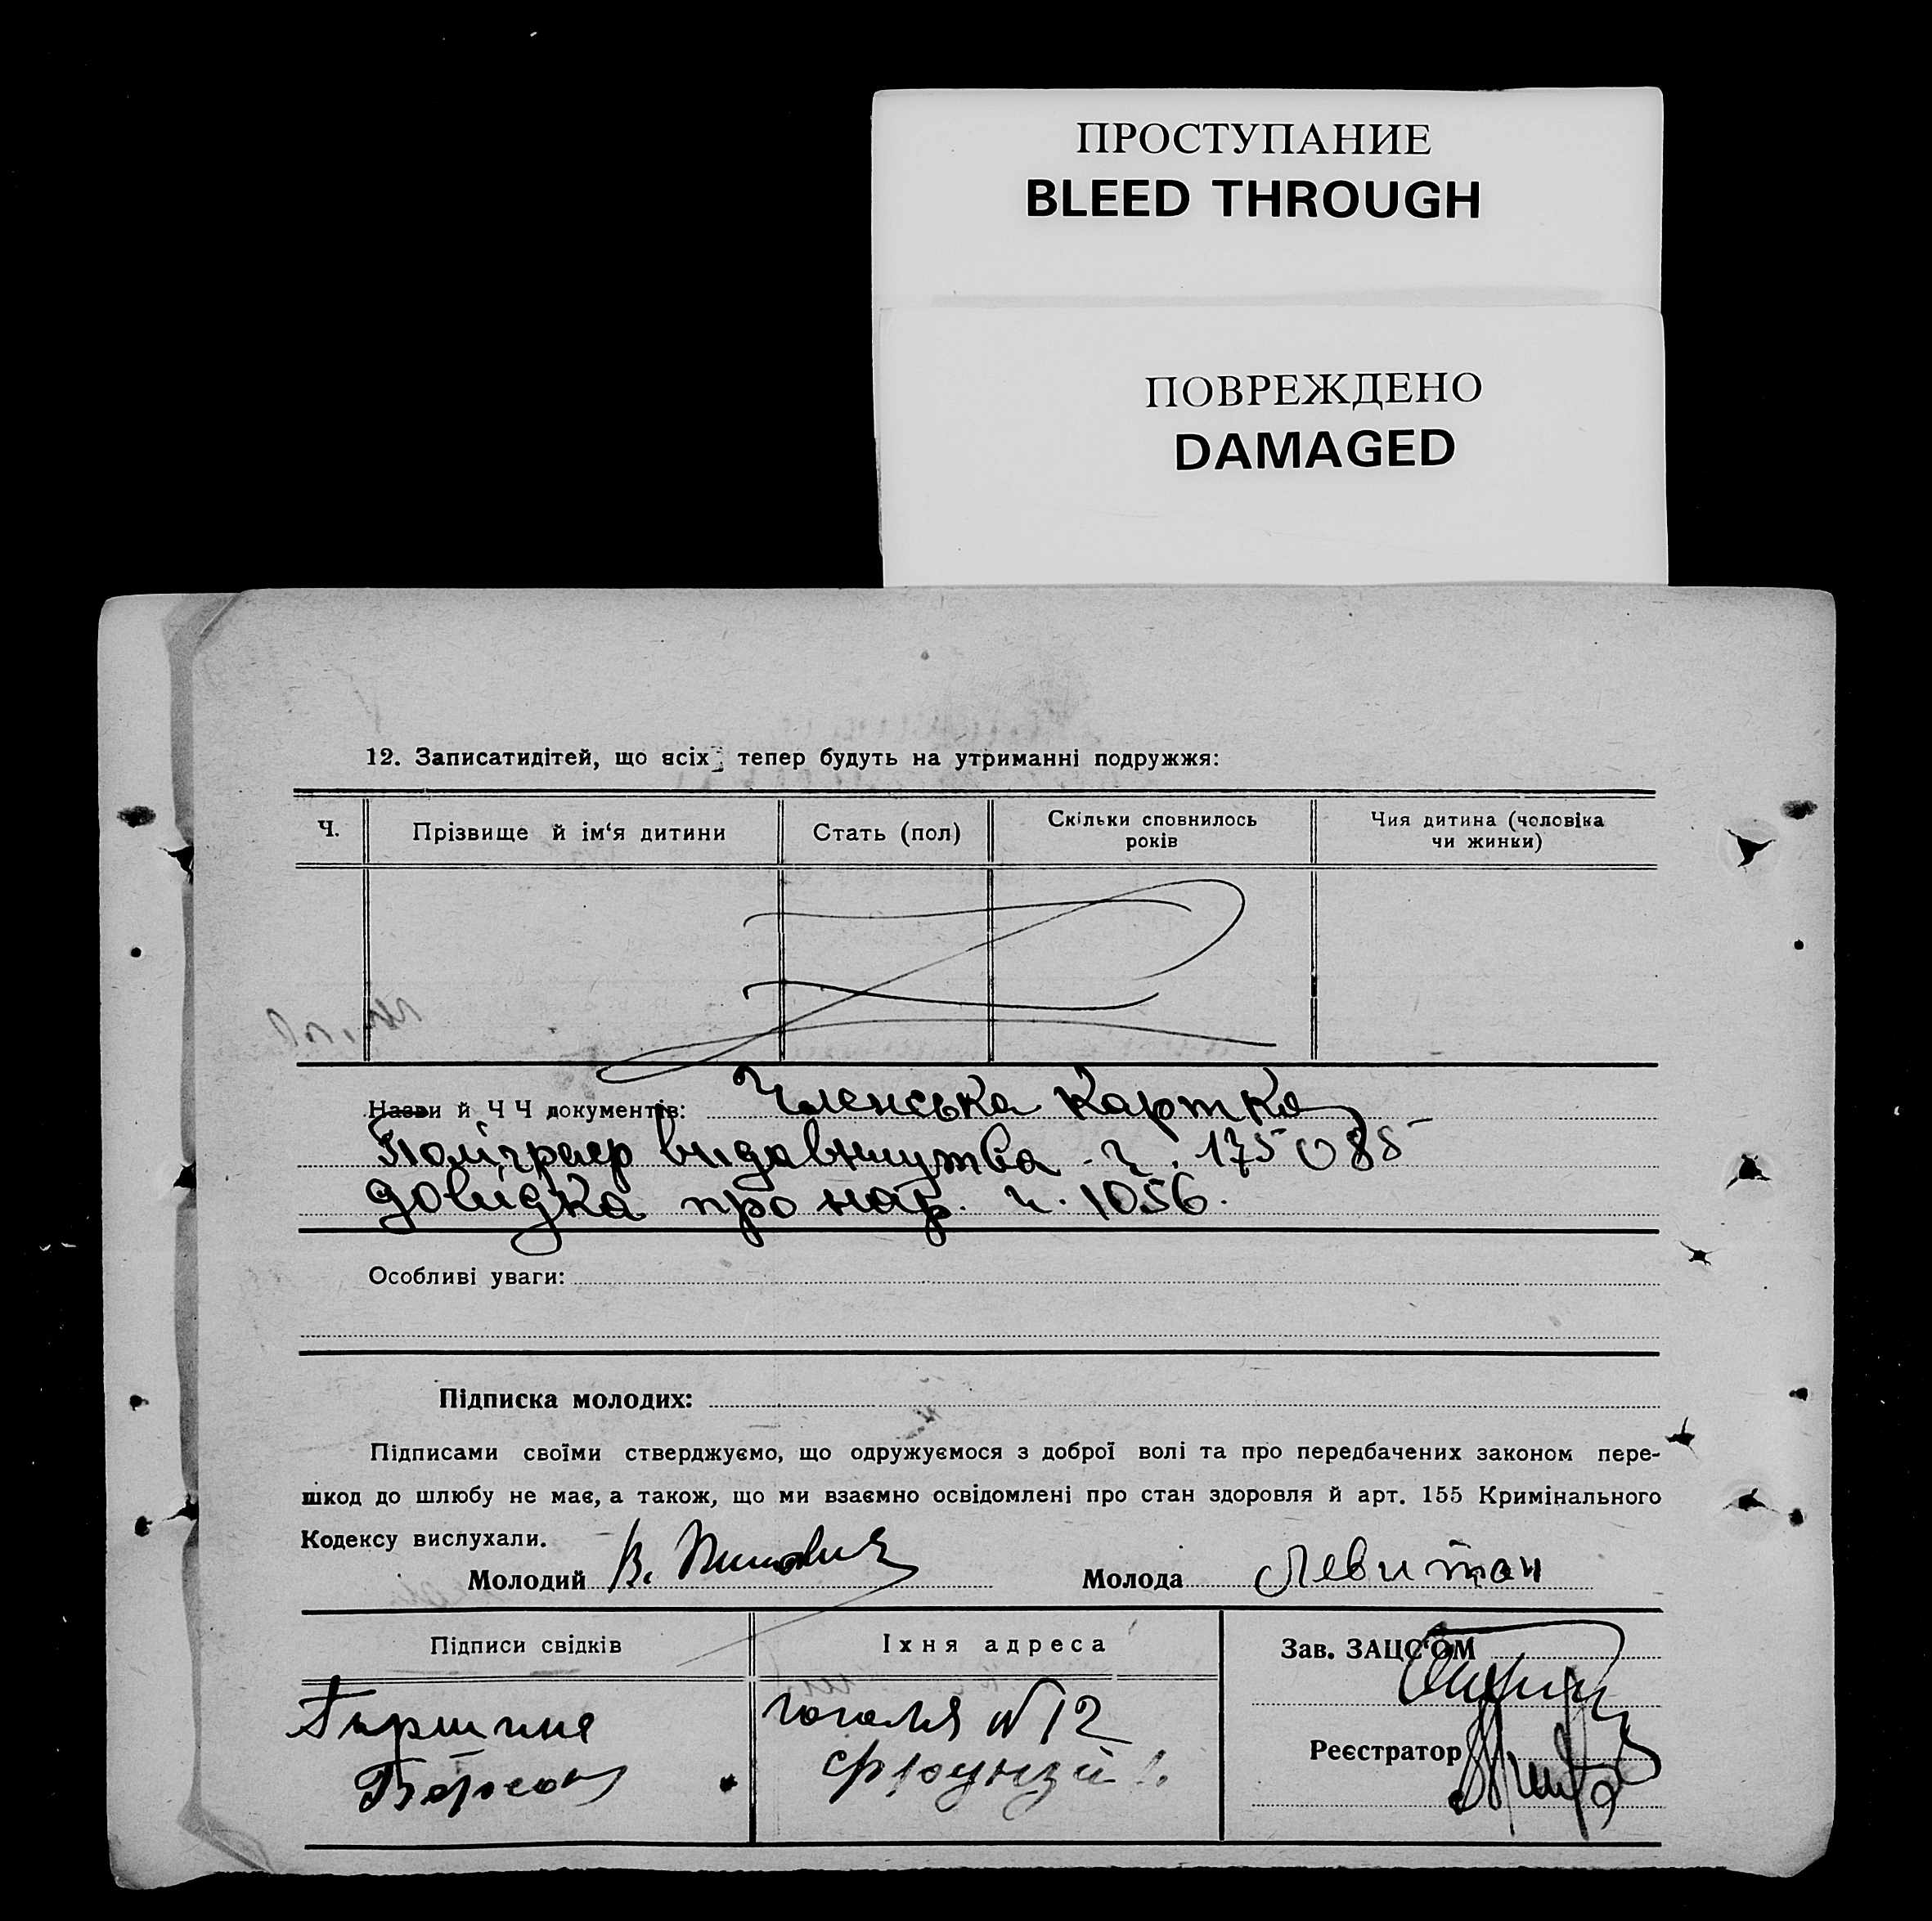 ПРОСТУПАНИЕ
BLEED THROUGH
ПОВРЕЖДЕНО
DAMAGED
12. Записатидітей, що всіх тепер будуть на утриманні подружжя:
Ч.
Прізвище й ім‘я дитини
Стать (пол)
Скільки сповнилось
років
Чия дитина (чоловіка
чи жинки)
Назви й Ч Ч документів: Членська картка
Поліграф видавництва ч. 175085
довідка про нар. ч. 1056.
Особливі уваги:
Підписка молодих:
Підписами своїми стверджуємо, що одружуємося з доброї волі та про передбачених законом пере-
шкод до шлюбу не має, а також, що ми взаємно освідомлені про стан здоровля й арт. 155 Кримінального
Кодексу вислухали.
Молодий В.
Молода Левитан
Підписи свідків
Їхня адреса
Зав. ЗАЦС‘ОМ
Гоголя №12
Реєстратор